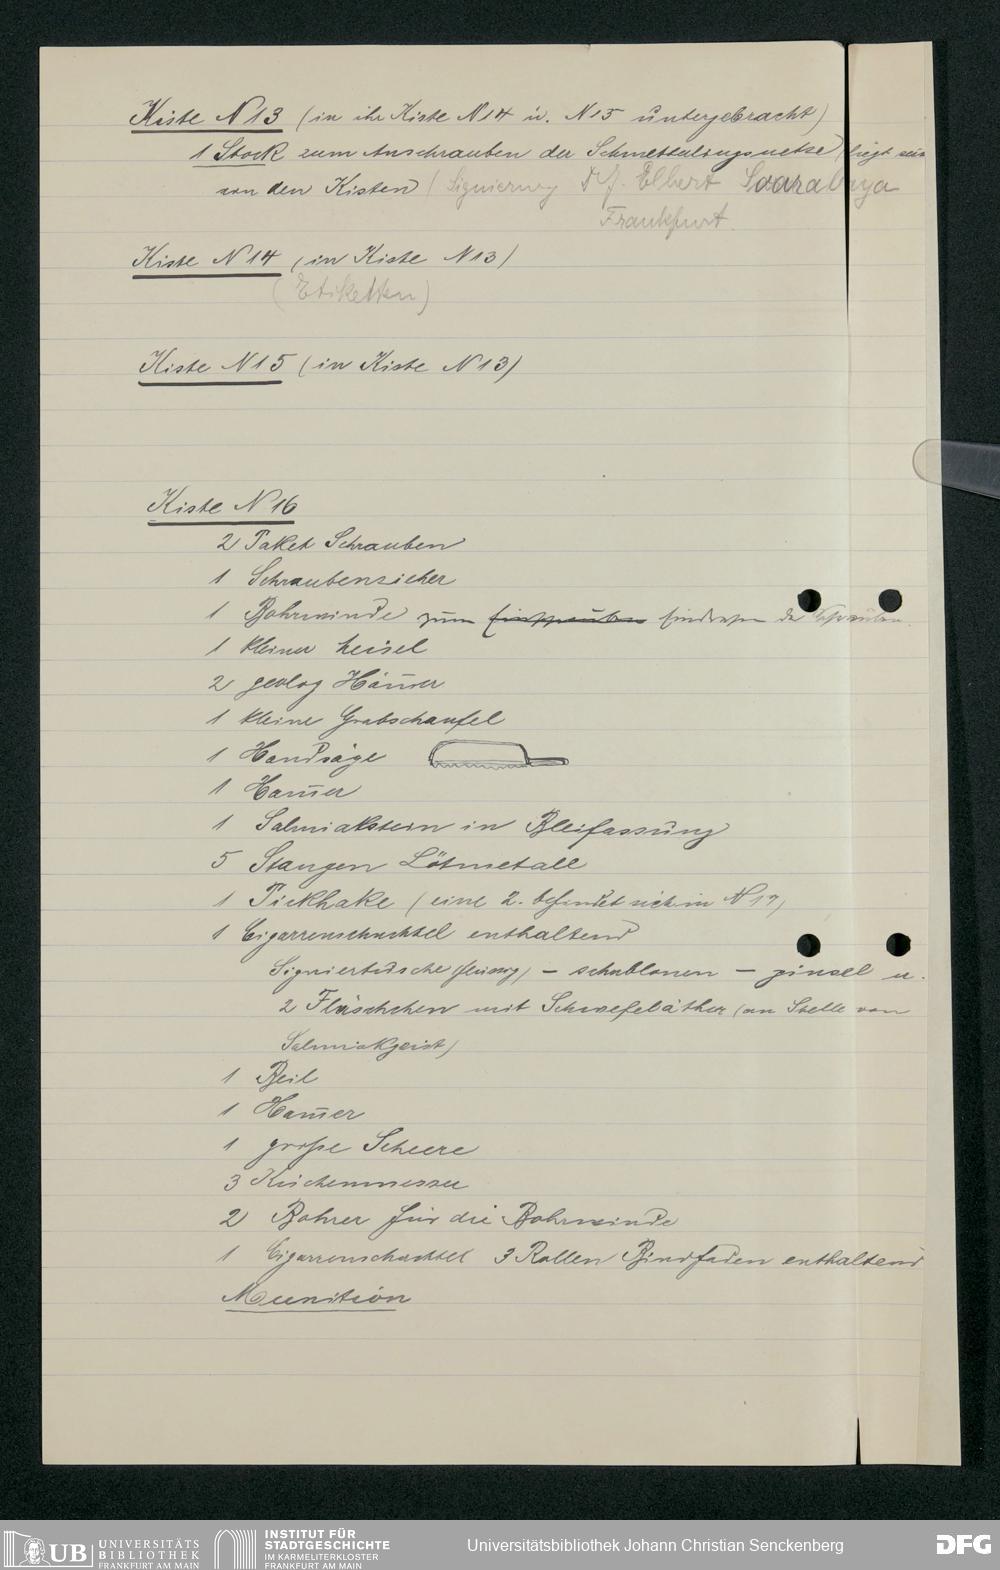 Kiste N 13 (in ihr Kiste N 14 u. N 15 untergebracht)
1 Stock zum Anschrauben der Schmetterlingsnetze (liegt
von den Kisten (Signierung Dr J. Elbert Soarabaya
Frankfurt.
Kiste N 14 (in Kiste N 13)
(Etiketten)
Kiste N 15 (in Kiste N 13)
Kiste N 16
2 Paket Schrauben
1 Schraubenzieher
1 Bohrwinde zum Eindrehen der Schrauben.
1 kleiner Meisel
2 geolog Ham̅er
1 kleine Grabschaufel
1 Handsäge
1 Ham̅er
1 Salmiakstein in Bleifassung
5 Stangen Lötmetall
1 Pickhake (eine 2. befindet sich in N 17)
1 Cigarrenschachtel enthaltend
Signiertusche (flüssig) - schablonen - pinsel u.
2 Fläschchen mit Schwefeläther (an Stelle von
Salmiakgeist)
1 Beil
1 Ham̅er
1 große Scheere
3 Küchenmesser
2 Bohrer für die Bohrwinde
1 Cigarrenschachtel 3 Rollen Bindfaden enthaltend
Munition
UB UNIVERSITÄTS
BIBLIOTHEK
FRANKFURT AM MAIN
INSTITUT FÜR
STADTGESCHICHTE
IM KARMELITERKLOSTER
FRANKFURT AM MAIN
Universitätsbibliothek Johann Christian Senckenberg
DFG